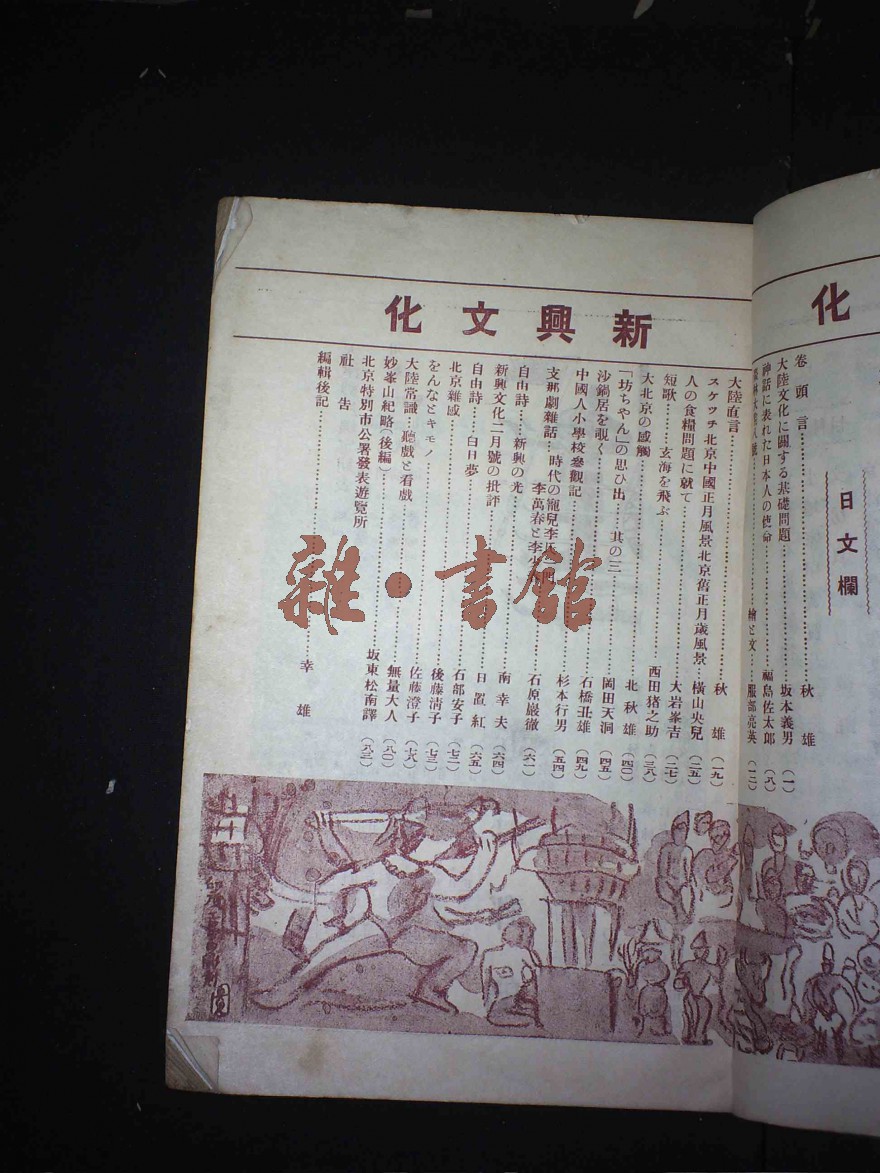 新興文化
化
日文欄
卷頭言 秋雄
大陸文化に關する基礎問題 坂本義男 (一)
神話に表れた日本人の使命 福島佐太郎 (八)
繪と文 服部亮英 (一二)
大陸直言 秋雄 (一九)
スケッチ北京中國正月風景北京舊正月歲風景 橫山央兒 (二五)
人の食糧問題に就て 大岩峯吉 (二七)
短歌 玄海を飛ぶ 西田猪之助 (三八)
大北京の感觸 北秋雄 (四〇)
「坊ちやん」の思ひ出 其の三 岡田天洞 (四五)
沙鍋居を覗く 石橋丑雄 (四九)
中國人小學校參觀記 杉本行男 (五四)
支那劇雜話 時代の寵兒李
李萬春と李少 石原巖徹 (六一)
自由詩 新興の光 南幸夫 (六四)
新興文化二月號の批評
自由詩 白日夢 日置紅 (六五)
北京雜感 石部安子 (七二)
をんなとキモノ 後藤清子 (七三)
大陸常識 聽戲と看戲 佐藤澄子 (七八)
妙峯山紀略(後編) 無量大人 (八〇)
北京特別市公署發表遊覽所 坂東松南譯 (八三)
社告
編輯後記 幸雄
雜·書館